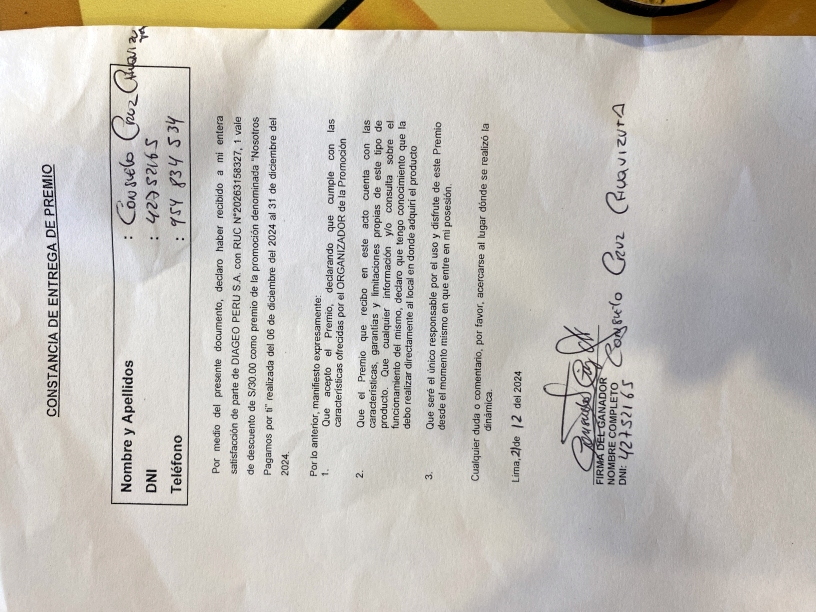 CONSTANCIA DE ENTREGA DE PREMIO
Nombre y Apellidos : Consuelo Cruz Chuavizuta
DNI : 42752165
Teléfono : 954 834 534
Por medio del presente documento, declaro haber recibido a mi entera
satisfacción de parte de DIAGEO PERU S.A. con RUC N°20263158327, 1 vale
de descuento de S/30.00 como premio de la promoción denominada "Nosotros
Pagamos por ti" realizada del 06 de diciembre del 2024 al 31 de diciembre del
2024.
Por lo anterior, manifiesto expresamente:
1. Que acepto el Premio, declarando que cumple con las
características ofrecidas por el ORGANIZADOR de la Promoción
2. Que el Premio que recibo en este acto cuenta con las
características, garantías y limitaciones propias de este tipo de
producto. Que cualquier información y/o consulta sobre el
funcionamiento del mismo, declaro que tengo conocimiento que la
debo realizar directamente al local en donde adquirí el producto
3. Que seré el único responsable por el uso y disfrute de este Premio
desde el momento mismo en que entre en mi posesión.
Cualquier duda o comentario, por favor, acercarse al lugar dónde se realizó la
dinámica.
Lima, 21 de 12 del 2024
FIRMA DEL GANADOR
NOMBRE COMPLETO Consuelo Cruz Chuavizuta
DNI: 42752165